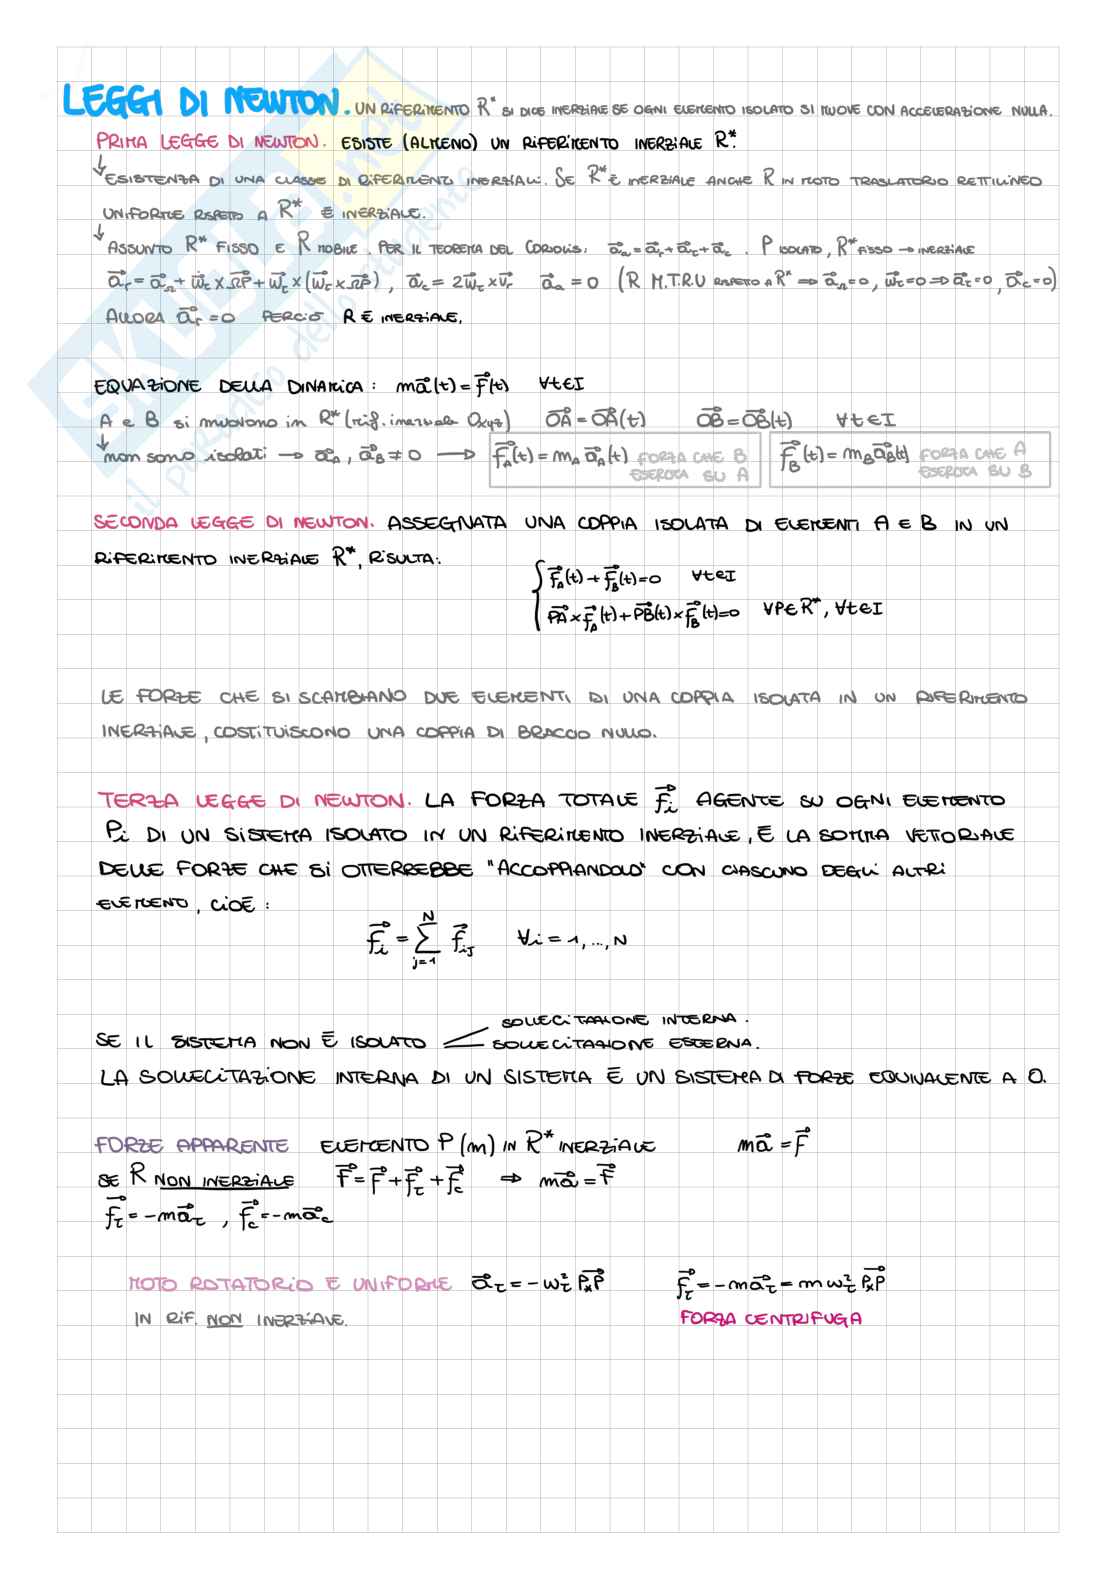 LEGGI DI NEWTON. UN RIFERIMENTO R* SI DICE INERZIALE SE OGNI ELEMENTO ISOLATO SI MUOVE CON ACCELERAZIONE NULLA.
PRIMA LEGGE DI NEWTON. ESISTE (ALMENO) UN RIFERIMENTO INERZIALE R*.
↳ ESISTENZA DI UNA CLASSE DI RIFERIMENTI INERZIALI. SE R* È INERZIALE ANCHE R IN MOTO TRASLATORIO RETTILINEO
UNIFORME RISPETTO A R* È INERZIALE.
↓ ASSUNTO R* FISSO E R MOBILE. PER IL TEOREMA DEL CORIOLIS: a⃗ₐ = a⃗ᵣ + a⃗_τ + a⃗_c . P ISOLATO, R* FISSO → INERZIALE
a⃗_τ = a⃗_Ω + ω⃗̇_τ × ΩP⃗ + ω⃗_τ × (ω⃗_τ × ΩP⃗) , a⃗_c = 2ω⃗_τ × v⃗ᵣ a⃗ₐ = 0 (R M.T.R.U RISPETTO A R* ⇒ a⃗_Ω = 0, ω⃗_τ = 0 ⇒ a⃗_τ = 0, a⃗_c = 0)
ALLORA a⃗ᵣ = 0 PERCIÒ R È INERZIALE.
EQUAZIONE DELLA DINAMICA : ma⃗(t) = f⃗(t) ∀t∈I
A e B si muovono in R* (rif. inerziale Oxyz) OA⃗ = OA⃗(t) OB⃗ = OB⃗(t) ∀t∈I
↓ non sono isolati → a⃗_A, a⃗_B ≠ 0 → f⃗_A(t) = m_A a⃗_A(t) FORZA CHE B ESERCITA SU A f⃗_B(t) = m_B a⃗_B(t) FORZA CHE A ESERCITA SU B
SECONDA LEGGE DI NEWTON. ASSEGNATA UNA COPPIA ISOLATA DI ELEMENTI A E B IN UN
RIFERIMENTO INERZIALE R*, RISULTA:
{ f⃗_A(t) + f⃗_B(t) = 0 ∀t∈I
PA⃗ × f⃗_A(t) + PB⃗(t) × f⃗_B(t) = 0 ∀P∈R*, ∀t∈I
LE FORZE CHE SI SCAMBIANO DUE ELEMENTI DI UNA COPPIA ISOLATA IN UN RIFERIMENTO
INERZIALE, COSTITUISCONO UNA COPPIA DI BRACCIO NULLO.
TERZA LEGGE DI NEWTON. LA FORZA TOTALE f⃗ᵢ AGENTE SU OGNI ELEMENTO
Pᵢ DI UN SISTEMA ISOLATO IN UN RIFERIMENTO INERZIALE, È LA SOMMA VETTORIALE
DELLE FORZE CHE SI OTTERREBBE "ACCOPPIANDOLO" CON CIASCUNO DEGLI ALTRI
ELEMENTO, CIOÈ :
f⃗ᵢ = ∑_{j=1}^{N} f⃗ᵢⱼ ∀i = 1, ..., N
SOLLECITAZIONE INTERNA.
SE IL SISTEMA NON È ISOLATO < SOLLECITAZIONE ESTERNA.
LA SOLLECITAZIONE INTERNA DI UN SISTEMA È UN SISTEMA DI FORZE EQUIVALENTE A 0.
FORZE APPARENTE ELEMENTO P (m) IN R* INERZIALE ma⃗ = F⃗
SE R NON INERZIALE F⃗ = F⃗ + f⃗_τ + f⃗_c ⇒ ma⃗ = F⃗
f⃗_τ = -ma⃗_τ , f⃗_c = -ma⃗_c
MOTO ROTATORIO È UNIFORME a⃗_τ = -ω²_τ PₓP⃗ f⃗_τ = -ma⃗_τ = mω²_τ PₓP⃗
IN RIF. NON INERZIALE. FORZA CENTRIFUGA
SKUOLA.net
il paradiso dello studente